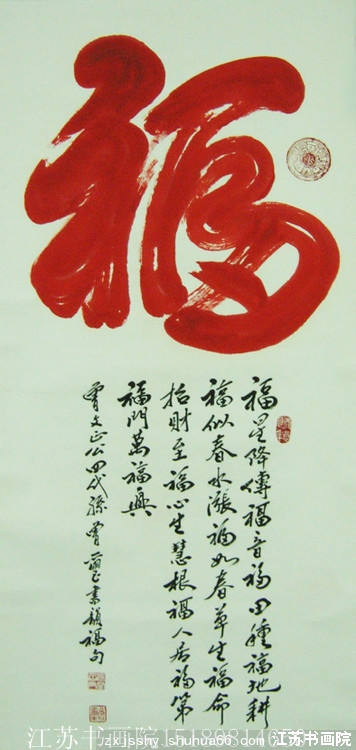 福
福星降傳福音福田種福地耕
福似春水漲福如春草生福命
招財至福心生慧根福人居福第
福門萬福興
曾文正公四代孫曾書福句
江苏书画院
zxjsshy.jshuhua66.com 江苏书画院